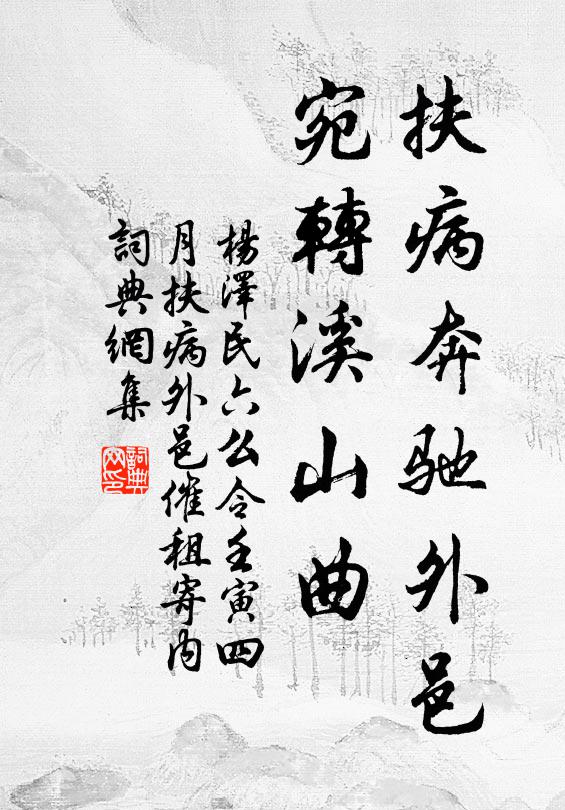 扶病奔馳外邑
宛轉溪山曲
楊澤民六么令壬寅四
月扶病外邑催租寄內
詞典網集
詞典
网印